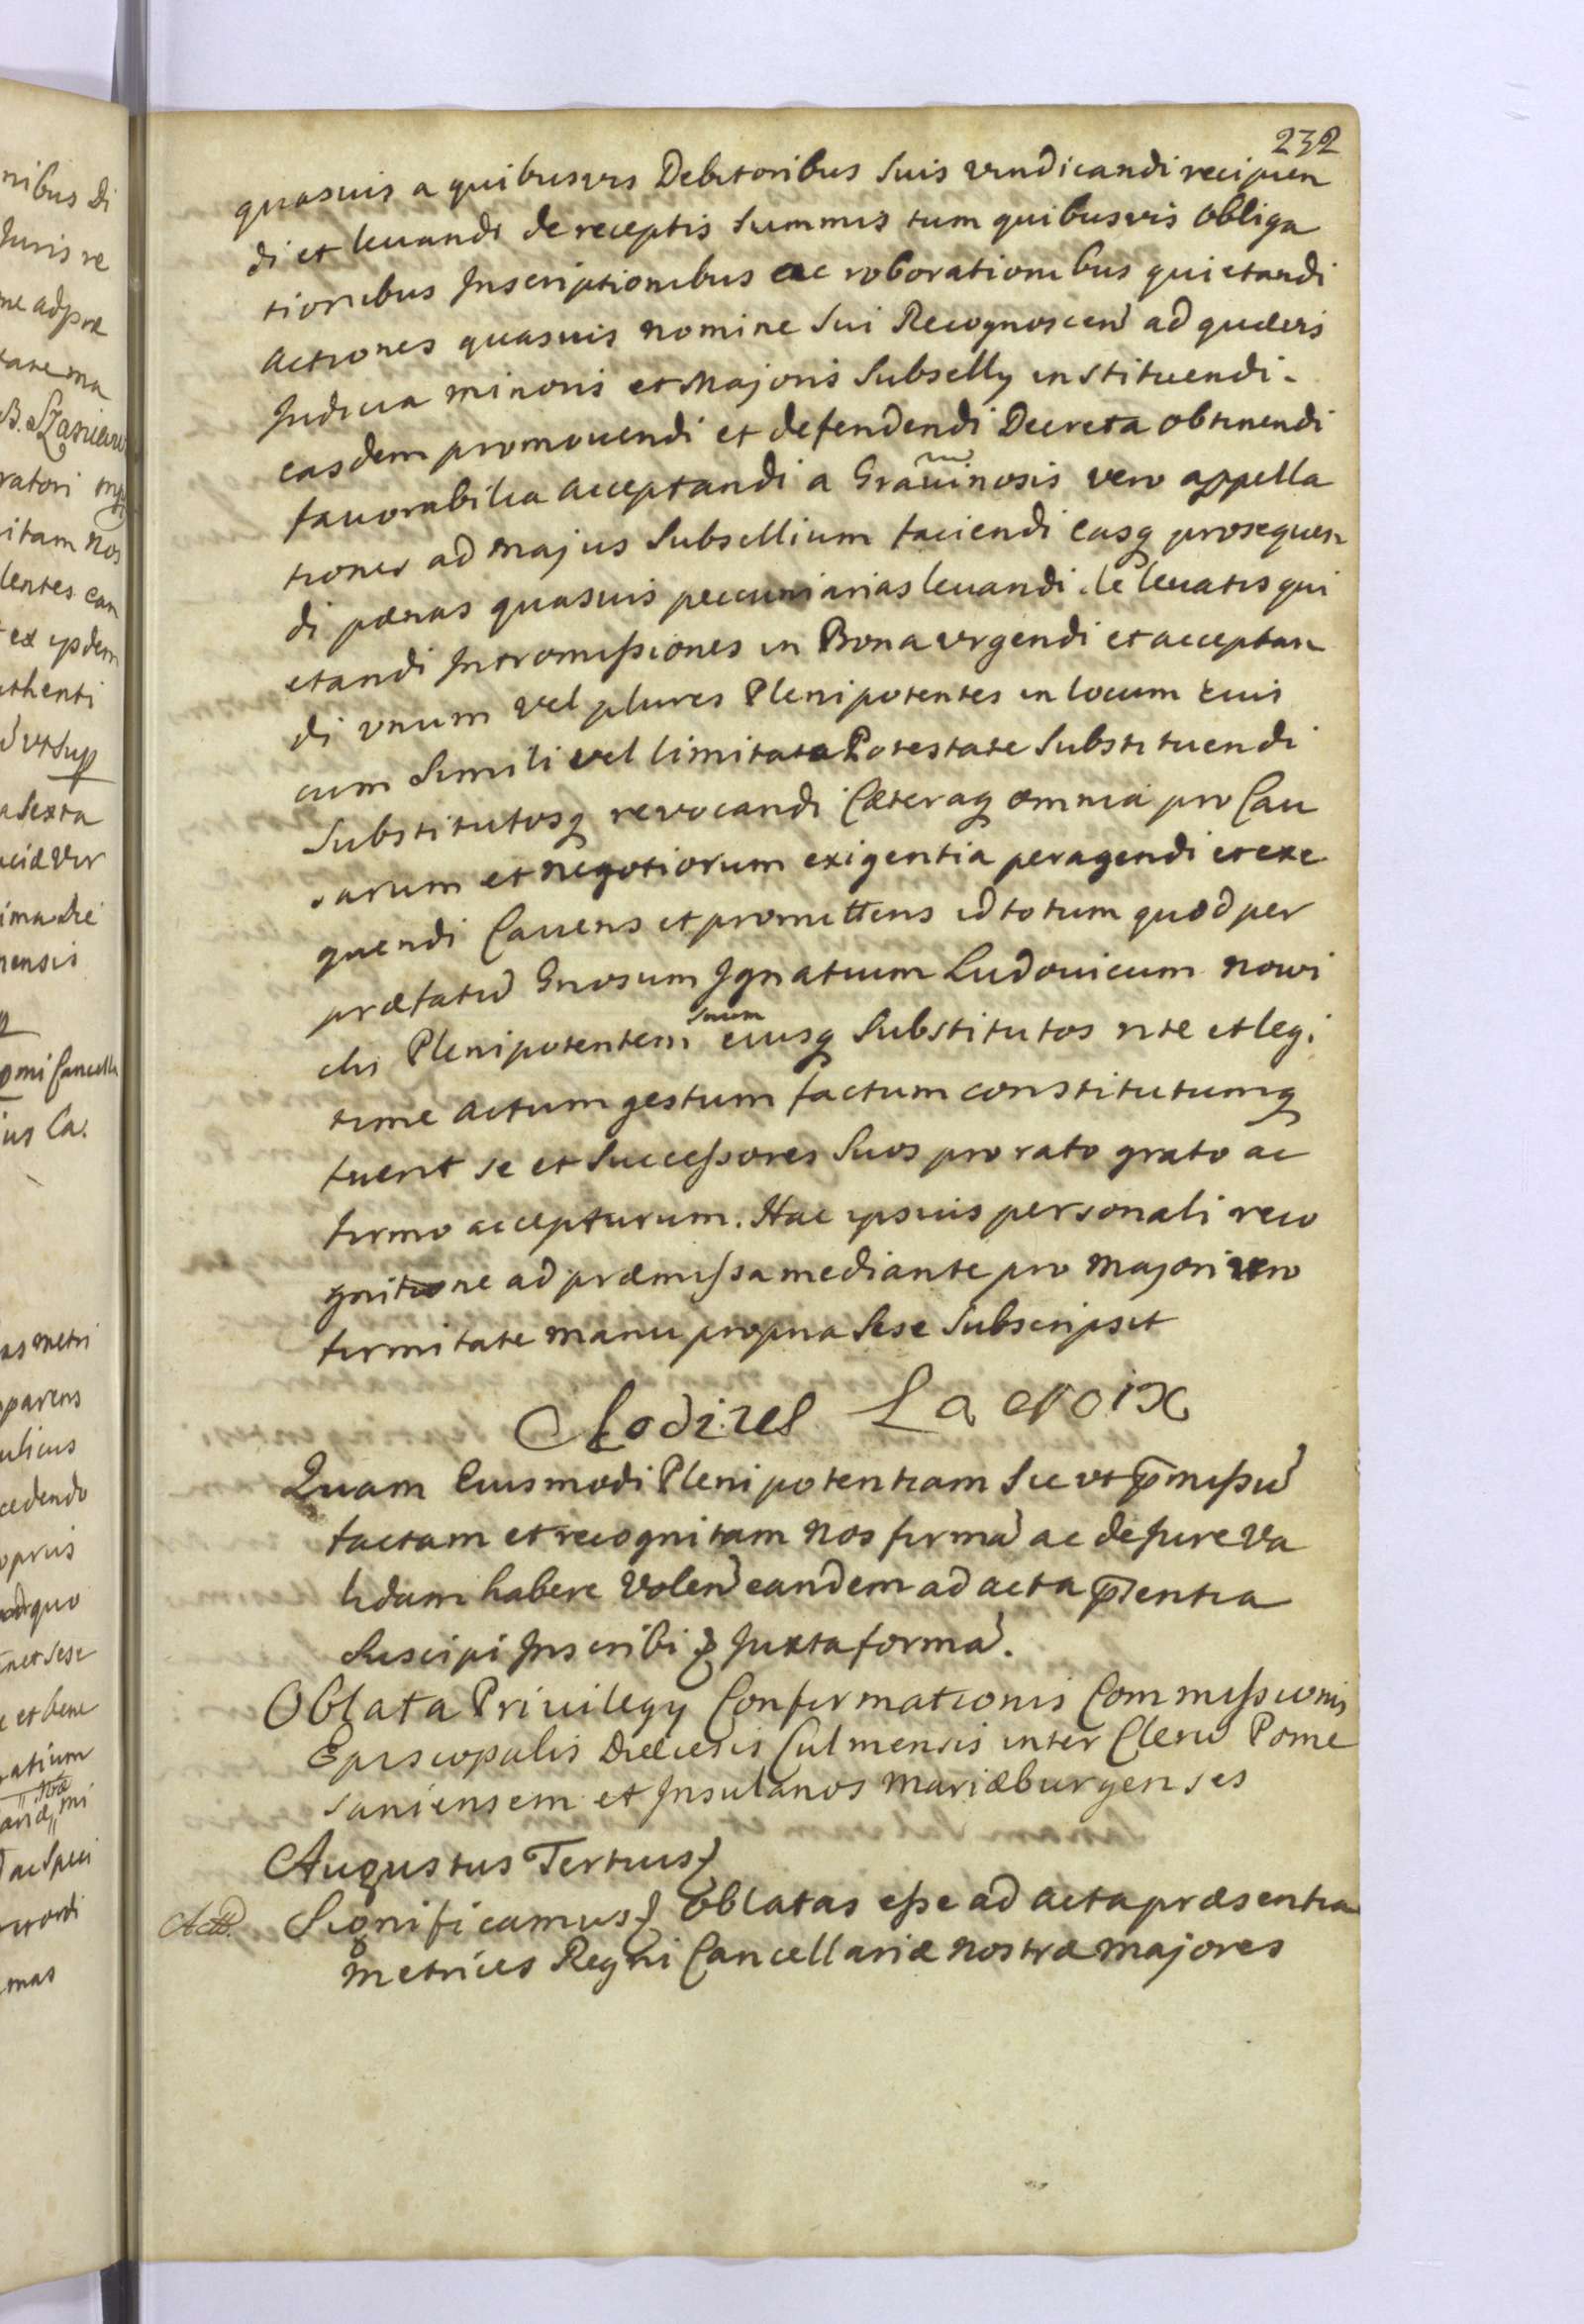 232
quasuis a quibusvis Debitoribus Suis vindicandi recipien
di et levandi de receptis Summis tum quibusvis obliga
tionibus Inscriptionibus ac roborationibus quietandi
actiones quasuis nomine Sui Recognoscen ad quævis
Judicia minoris et Majoris Subselly instituendi.
easdem promovendi et defendendi Decreta obtinendi
favorabilia acceptandi a Gravinosis vero appella
tiones ad majus Subsellium faciendi easq prosequen
di pænas quasuis pecuniarias levandi de levatis qui
etandi Intromissiones in Bona vrgendi et acceptan
di vnum vel plures Plenipotentes in locum Sui
cum Simili vel limitata Potestate Substituendi
Substitutosq revocandi Cæteraq omnia pro Cau
sarum et negotiorum exigentia peragendi et exe
quendi Cavens et promittens id totum quod per
præfatū Gnosum Ignatium Ludovicum Nowi
cki Plenipotentem suum eiusq Substitutos rite et legi
time actum gestum factum constitutumq
fuerit se et Successores Suos pro rato grato ac
firmo accepturum. Hac ipsius personali reco
gnitione ad præmissa mediante pro majori vero
firmitate manu propria Sese Subscripsit
La croix
Quam Eiusmodi Plenipotentiam Sic vt p̄missū
factam et recognitam Nos firmā ac de Jure va
lidam habere Volen eandem ad acta p̄sentia
Suscipi Inscribi & Juxta formā.
Oblata Privilegy Confirmationis Commissionis
Episcopalis Diæcesis Culmensis inter Clerū Pome
saniensem et Insulanos Mariæburgenses
Augustus Tertius &
Significamus & Oblatas esse ad acta præsentia
Metrices Regni Cancellariæ nostræ majores